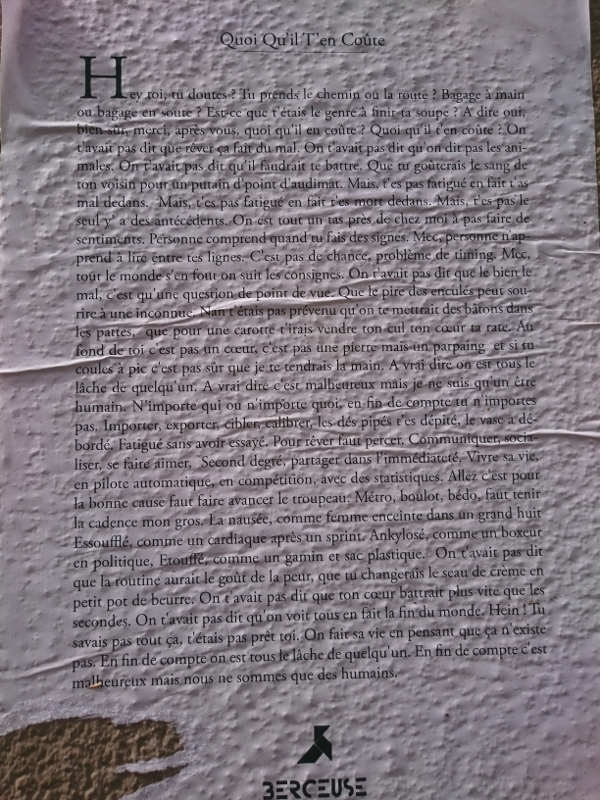 Quoi Qu'il T'en Coûte
Hey toi, tu doutes ? Tu prends le chemin ou la route ? Bagage à main
ou bagage en soute ? Est-ce que t'étais le genre à finir ta soupe ? A dire oui,
bien sûr, merci, après vous, quoi qu'il en coûte ? Quoi qu'il t'en coûte ? On
t'avait pas dit que rêver ça fait du mal. On t'avait pas dit qu'on dit pas les ani-
males. On t'avait pas dit qu'il faudrait te battre. Que tu goûterais le sang de
ton voisin pour un putain d'point d'audimat. Mais, t'es pas fatigué en fait t'as
mal dedans. Mais, t'es pas fatigué en fait t'es mort dedans. Mais, t'es pas le
seul y' a des antécédents. On est tout un tas près de chez moi à pas faire de
sentiments. Personne comprend quand tu fais des signes. Mec, personne n'ap-
prend à lire entre tes lignes. C'est pas de chance, problème de timing. Mec,
tout le monde s'en fout on suit les consignes. On t'avait pas dit que le bien le
mal, c'est qu'une question de point de vue. Que le pire des enculés peut sou-
rire à une inconnue. Nan t'étais pas prévenu qu'on te mettrait des bâtons dans
les pattes, que pour une carotte t'irais vendre ton cul ton cœur ta rate. Au
fond de toi c'est pas un cœur, c'est pas une pierre mais un parpaing et si tu
coules à pic c'est pas sûr que je te tendrais la main. A vrai dire on est tous le
lâche de quelqu'un. A vrai dire c'est malheureux mais je ne suis qu'un être
humain. N'importe qui ou n'importe quoi, en fin de compte tu n'importes
pas. Importer, exporter, cibler, calibrer, les dés pipés t'es dépité, le vase a dé-
bordé. Fatigué sans avoir essayé. Pour rêver faut percer. Communiquer, socia-
liser, se faire aimer, Second degré, partager dans l'immédiateté. Vivre sa vie,
en pilote automatique, en compétition, avec des statistiques. Allez c'est pour
la bonne cause faut faire avancer le troupeau. Métro, boulot, bédo, faut tenir
la cadence mon gros. La nausée, comme femme enceinte dans un grand huit
Essoufflé, comme un cardiaque après un sprint. Ankylosé, comme un boxeur
en politique. Etouffé, comme un gamin et sac plastique. On t'avait pas dit
que la routine aurait le goût de la peur, que tu changerais le seau de crème en
petit pot de beurre. On t'avait pas dit que ton cœur battrait plus vite que les
secondes. On t'avait pas dit qu'on voit tous en fait la fin du monde. Hein ! Tu
savais pas tout ça, t'étais pas prêt toi. On fait sa vie en pensant que ça n'existe
pas. En fin de compte on est tous le lâche de quelqu'un. En fin de compte c'est
malheureux mais nous ne sommes que des humains.
BERCEUSE